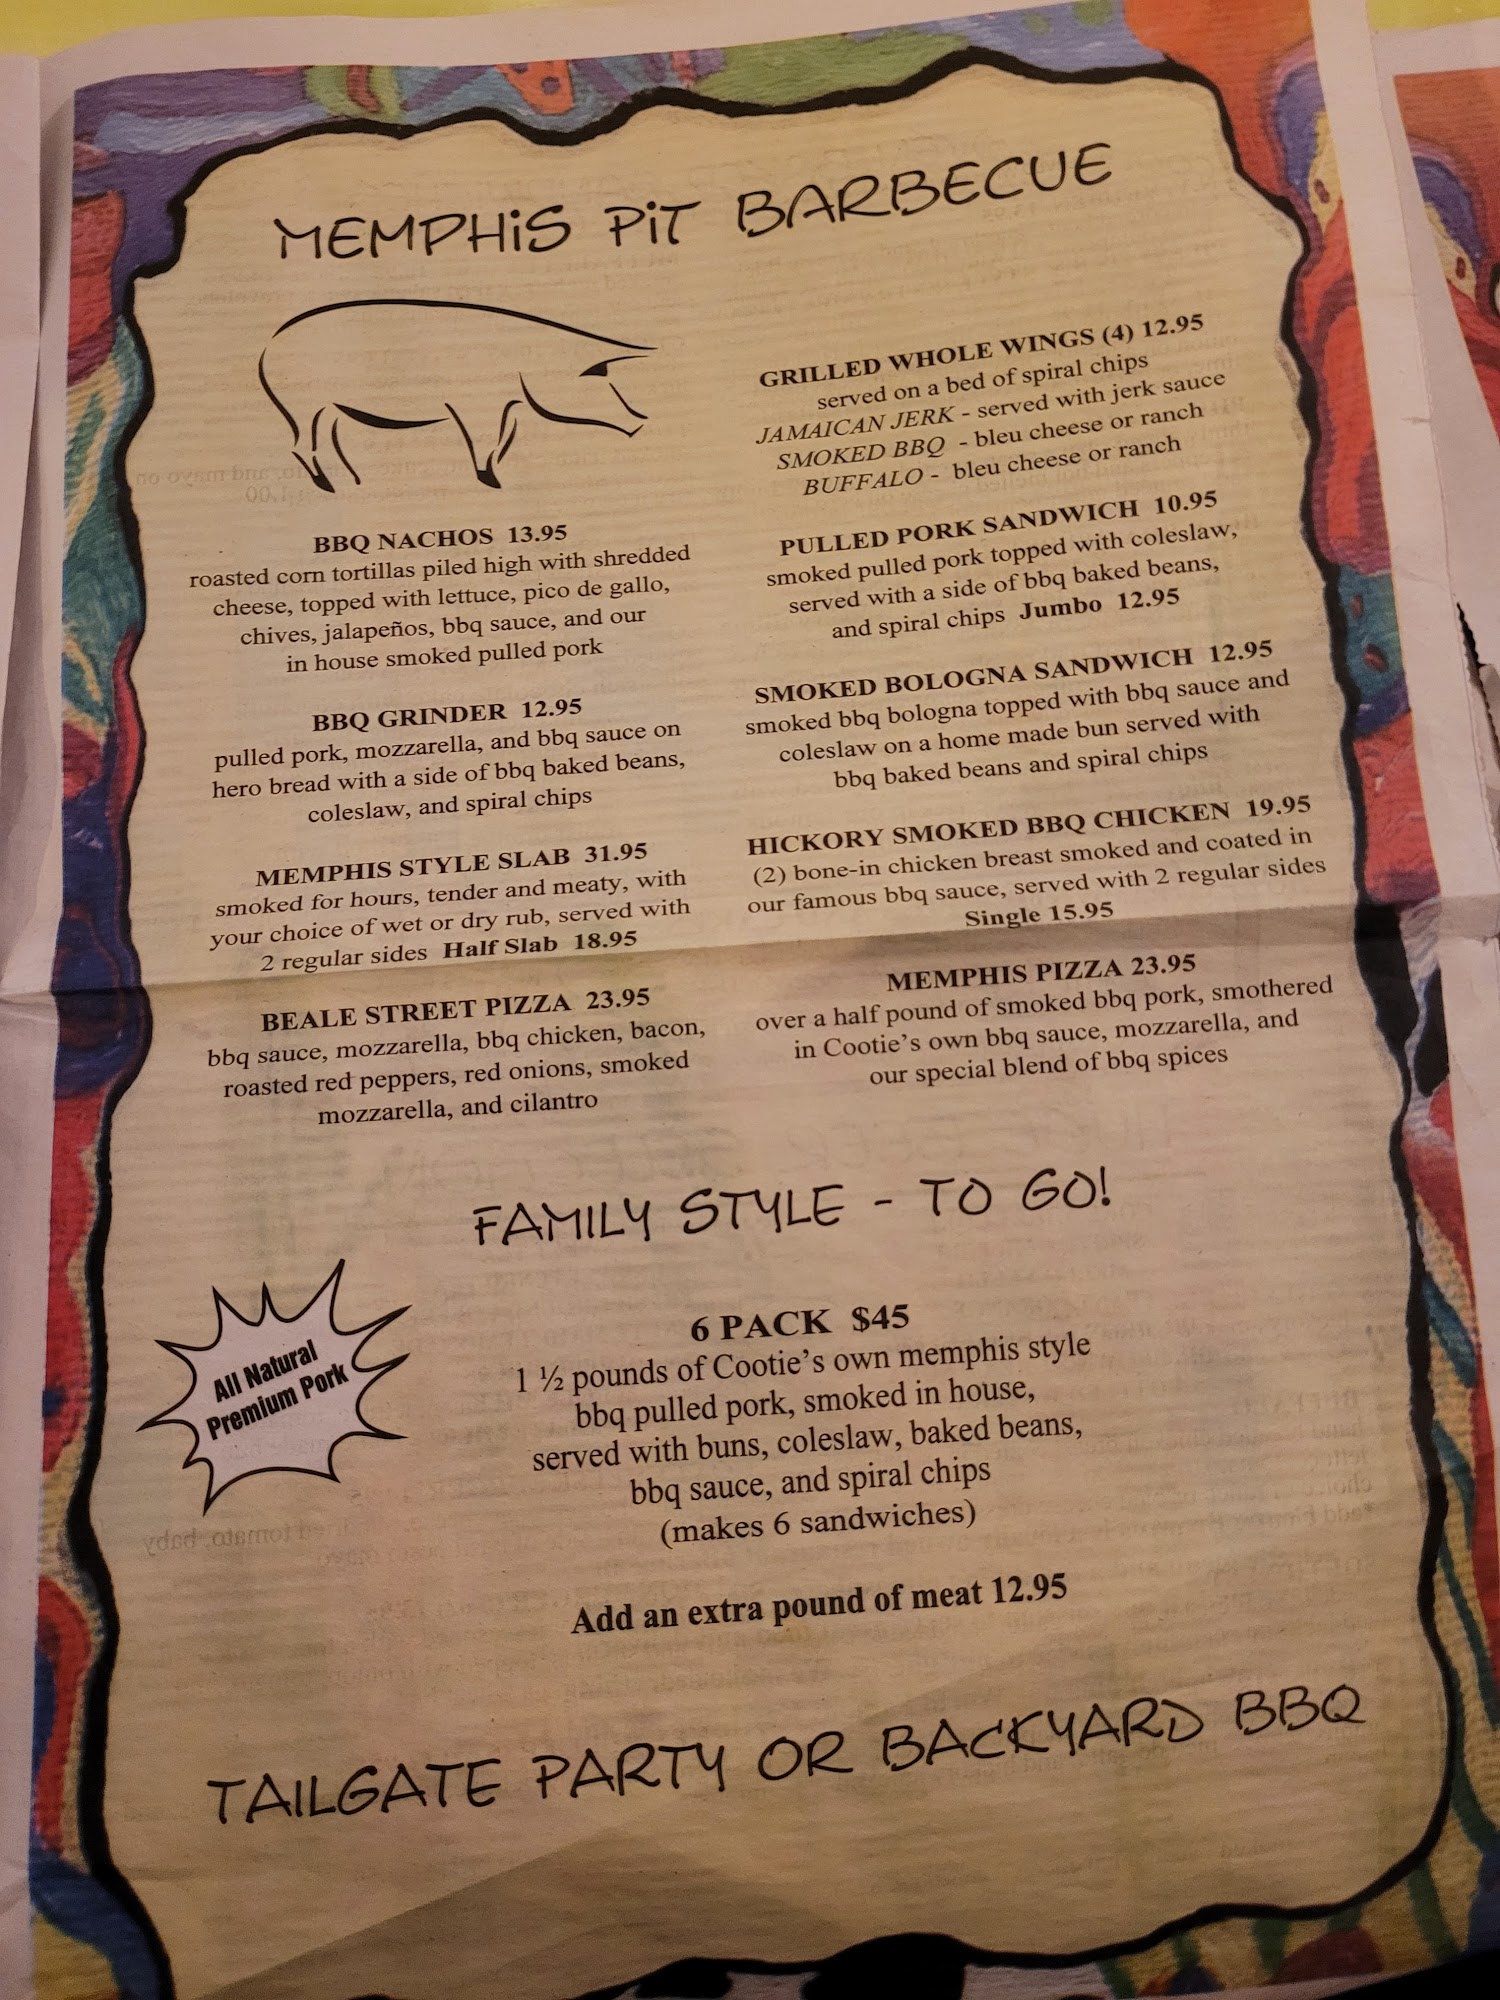 MEMPHiS PiT BARBECUE
BBQ NACHOS 13.95
roasted corn tortillas piled high with shredded
cheese, topped with lettuce, pico de gallo,
chives, jalapeños, bbq sauce, and our
in house smoked pulled pork
BBQ GRINDER 12.95
pulled pork, mozzarella, and bbq sauce on
hero bread with a side of bbq baked beans,
coleslaw, and spiral chips
MEMPHIS STYLE SLAB 31.95
smoked for hours, tender and meaty, with
your choice of wet or dry rub, served with
2 regular sides Half Slab 18.95
BEALE STREET PIZZA 23.95
bbq sauce, mozzarella, bbq chicken, bacon,
roasted red peppers, red onions, smoked
mozzarella, and cilantro
GRILLED WHOLE WINGS (4) 12.95
served on a bed of spiral chips
JAMAICAN JERK - served with jerk sauce
SMOKED BBQ - bleu cheese or ranch
BUFFALO - bleu cheese or ranch
PULLED PORK SANDWICH 10.95
smoked pulled pork topped with coleslaw,
served with a side of bbq baked beans,
and spiral chips Jumbo 12.95
SMOKED BOLOGNA SANDWICH 12.95
smoked bbq bologna topped with bbq sauce and
coleslaw on a home made bun served with
bbq baked beans and spiral chips
HICKORY SMOKED BBQ CHICKEN 19.95
(2) bone-in chicken breast smoked and coated in
our famous bbq sauce, served with 2 regular sides
Single 15.95
MEMPHIS PIZZA 23.95
over a half pound of smoked bbq pork, smothered
in Cootie's own bbq sauce, mozzarella, and
our special blend of bbq spices
FAMILY STYLE - TO GO!
All Natural
Premium Pork
6 PACK $45
1 ½ pounds of Cootie's own memphis style
bbq pulled pork, smoked in house,
served with buns, coleslaw, baked beans,
bbq sauce, and spiral chips
(makes 6 sandwiches)
Add an extra pound of meat 12.95
TAILGATE PARTY OR BACKYARD BBQ